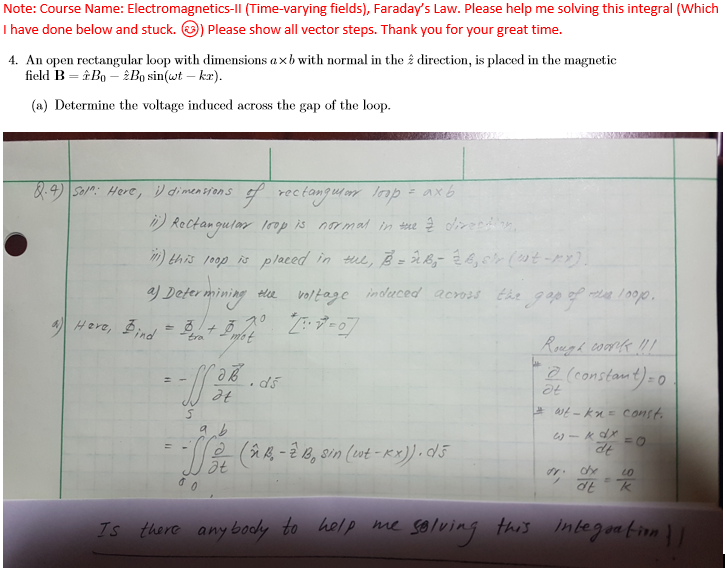 Note: Course Name: Electromagnetics-II (Time-varying fields), Faraday's Law. Please help me solving this integral (Which
I have done below and stuck. ☹) Please show all vector steps. Thank you for your great time.
4. An open rectangular loop with dimensions a×b with normal in the ẑ direction, is placed in the magnetic
field B = x̂B₀ − ẑB₀ sin(ωt − kx).
(a) Determine the voltage induced across the gap of the loop.
Q.4) Solⁿ: Here, i) dimensions of rectangular loop = axb
ii) Rectangular loop is normal in the ẑ direction.
iii) this loop is placed in the, B⃗ = x̂ B₀ - ẑ B₀ sin (ωt-kx).
a) Determining the voltage induced across the gap of the loop.
a) Here, Φ_ind = Φ_tra + Φ_mot ↗0 *[∵ v⃗ = 0]
= -∬_S ∂B⃗/∂t . ds⃗
= -∫₀^a ∫₀^b ∂/∂t (x̂ B₀ - ẑ B₀ sin (ωt-kx)) . ds⃗
Rough work !!!
* ∂/∂t (constant) = 0
* ωt - kx = const.
ω - k dx/dt = 0
or, dx/dt = ω/k
Is there anybody to help me solving this integration !!